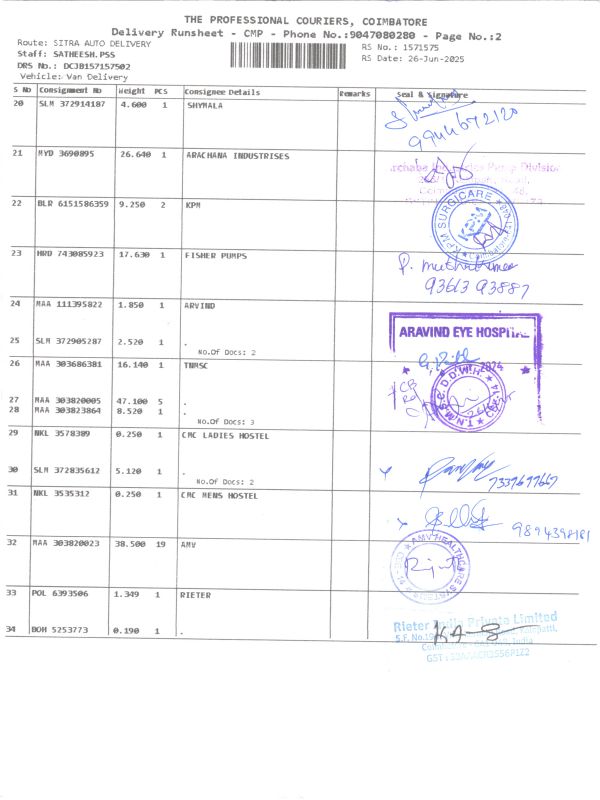 THE PROFESSIONAL COURIERS, COIMBATORE
Delivery Runsheet - CMP - Phone No.:9047080280 - Page No.:2
Route: SITRA AUTO DELIVERY
RS No.: 1571575
Staff: SATHEESH.PSS
RS Date: 26-Jun-2025
DRS No.: DCJB157157502
Vehicle: Van Delivery
S No Consignment No Weight PCS Consignee Details Remarks Seal & Signature
20 SLM 372914187 4.600 1 SHYMALA
9944672120
21 MYD 3690895 26.640 1 ARACHANA INDUSTRISES
Pump Division
22 BLR 6151586359 9.250 2 KPM
KPM SURGICARE
KPM
23 HRD 743085923 17.630 1 FISHER PUMPS
93613 93887
24 MAA 111395822 1.850 1 ARVIND
ARAVIND EYE HOSPITAL
25 SLM 372905287 2.520 1 .
No.Of Docs: 2
26 MAA 303686381 16.140 1 TNMSC
27 MAA 303820005 47.100 5 .
28 MAA 303823864 8.520 1 .
No.Of Docs: 3
29 NKL 3578389 0.250 1 CMC LADIES HOSTEL
30 SLM 372835612 5.120 1 .
No.Of Docs: 2
7339697667
31 NKL 3535312 0.250 1 CMC MENS HOSTEL
9894398161
32 MAA 303820023 38.500 19 AMV
AMV HEALTHCARE SYSTEMS
33 POL 6393506 1.349 1 RIETER
Rieter India Private Limited
34 BOM 5253773 0.190 1 .
India